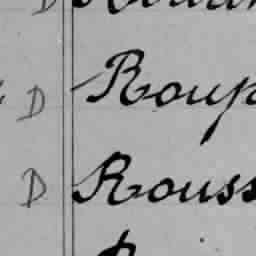 D Roup
D Rouss